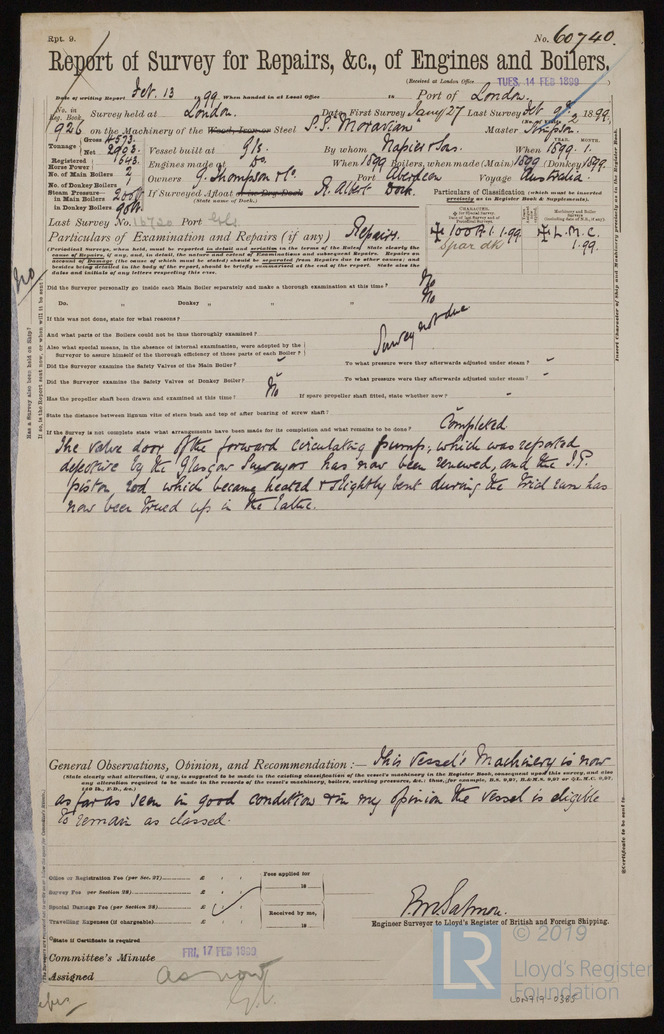 Rpt. 9.
No. 60740.
Report of Survey for Repairs, &c., of Engines and Boilers.
(Received at London Office TUES. 14 FEB 1899
Date of writing Report Feb. 13 1899. When handed in at Local Office 18 Port of London.
No. in Reg. Book. Survey held at London. Date, First Survey Jany 27 Last Survey Feb 9th 1899.
(No. of Visits 2)
926 on the Machinery of the Wood, Iron or Steel S.S. Moravian Master Simpson.
Tonnage Gross 4573. Net 2993. Vessel built at Gls. By whom Napier & Sons. When 1899. 1.
Registered Horse Power 643. Engines made at Do. When 1899 Boilers, when made (Main) 1899 (Donkey) 1899.
No. of Main Boilers 2
No. of Donkey Boilers 1 Owners G. Thompson & Co. Port Aberdeen Voyage Australia.
Steam Pressure in Main Boilers
in Donkey Boilers If Surveyed Afloat or in Dry Dock R. Albert Dock.
(State name of Dock.)
Particulars of Classification (which must be inserted precisely as in Register Book & Supplements).
Last Survey No. 16720 Port Gls
Particulars of Examination and Repairs (if any) Repairs.
100A1. 1.99. L.M.C.
Spar dk 1.99.
(Periodical Surveys, when held, must be reported in detail and seriatim in the terms of the Rules. State clearly the
cause of Repairs, if any, and, in detail, the nature and extent of Examinations and subsequent Repairs. Repairs on
account of Damage (the cause of which must be stated) should be separated from Repairs due to other causes; and
besides being detailed in the body of the report, should be briefly summarised at the end of the report. State also the
dates and initials of any letters respecting this case.
Did the Surveyor personally go inside each Main Boiler separately and make a thorough examination at this time? No
Do. „ Donkey „ „ „ No
If this was not done, state for what reasons?
And what parts of the Boilers could not be thus thoroughly examined? Survey not due
Also what special means, in the absence of internal examination, were adopted by the
Surveyor to assure himself of the thorough efficiency of those parts of each Boiler?
Did the Surveyor examine the Safety Valves of the Main Boiler? To what pressure were they afterwards adjusted under steam?
Did the Surveyor examine the Safety Valves of Donkey Boiler? To what pressure were they afterwards adjusted under steam?
Has the propeller shaft been drawn and examined at this time? No If spare propeller shaft fitted, state whether new?
State the distance between lignum vitæ of stern bush and top of after bearing of screw shaft?
If the Survey is not complete state what arrangements have been made for its completion and what remains to be done? Completed.
The valve door of the forward circulating pump, which was reported
defective by the Glasgow Surveyors has now been renewed, and the I.P.
piston rod which became heated & slightly bent during the trial run has
now been trued up in the lathe.
General Observations, Opinion, and Recommendation:— This Vessel's Machinery is now
(State clearly what alteration, if any, is suggested to be made in the existing classification of the vessel's machinery in the Register Book, consequent upon this survey, and also
any alteration required to be made in the records of the vessel's machinery, boilers, working pressures, &c.: thus, for example, B.S. 9,97, B.&M.S. 9,97 or L.M.C. 9,97,
140 lb., F.D., &c.)
as far as seen in good condition & in my opinion the vessel is eligible
to remain as classed.
Office or Registration Fee (per Sec. 27) £ Fees applied for
Survey Fee (per Section 28) £ 18
Special Damage Fee (per Section 28) £ Received by me,
Travelling Expenses (if chargeable) £ 18
State if Certificate is required
P. M. Salmon.
Engineer Surveyor to Lloyd's Register of British and Foreign Shipping.
Committee's Minute FRI. 17 FEB 1899
Assigned as now
© 2019
LR
Lloyd's Register
Foundation
LON719-0385